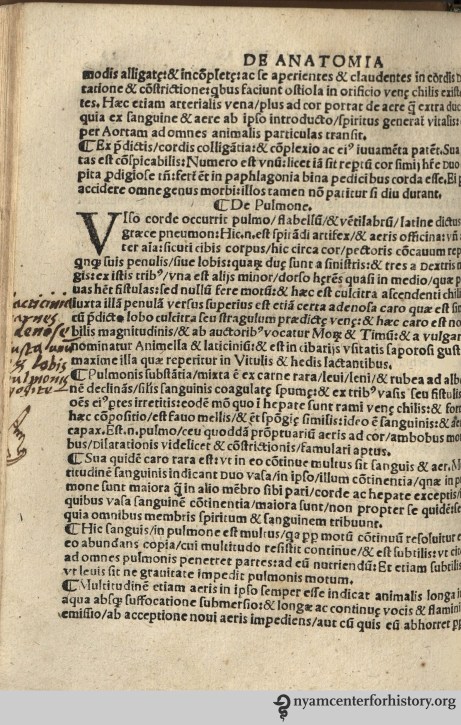 DE ANATOMIA
modis alligatę:& incōpletę: ac se aperientes & claudentes in cordis
tatione & cōstrictione: qbus faciunt ostiola in orificio venę chilis existē
tes. Hæc etiam arterialis vena/plus ad cor portat de aere q̄ extra duc
quia ex sanguine & aere ab ipso introducto/spiritus generat̄ vitalis:
per Aortam ad omnes animalis particulas transit.
¶Ex p̄dictis/cordis colligātia: & cōplexio ac ei⁹ iuuamēta patēt. Sua
tas est cōspicabilis: Numero est vnū: licet iā sit reptū cor simij hr̄e duo
pita p̄digiose tn̄: fert̄ ēt in paphlagonia bina pedicibus corda esse. Ei
accidere omne genus morbi: illos tamen nō patit̄ si diu durant.
¶De Pulmone.
VIso corde occurrit pulmo/flabellū/& vētilabrū/latine dictus
gręce pneumon: Hic.n. est spirādi artifex/& aeris officina:
ter aīa: sicuti cibis corpus/hic circa cor/pectoris cōcauum
qnq suis penulis/siue lobis: quaꝝ duę sunt a sinistris: & tres a Dextris
gis: ex istis trib⁹/vna est alijs minor/dorso hęrēs quasi in medio/quæ
uas hēt fistulas: sed nullū fere motū: & hæc est culcitra ascendenti chili
iuxta illā penulā versus superius est etiā certa adenosa caro quæ est
cū p̄dicto lobo culcitra seu stragulum prædictę venę: & hæc caro est
bilis magnitudinis/& ab auctorib⁹ vocatur Moꝝ & Timū: & a vulgar
nominatur Animella & laticiniū: & est in cibarijs vsitatis saporosi
maxime illa quæ reperitur in Vitulis & hedis lactantibus.
lacticiniū
carnes
adenose
iuxta unū
lobis
pulmonis
¶Pulmonis substātia/mixta ē ex carne rara/leui/leni/& rubea ad
nē declinās/silis sanguinis coagulatę spumę: & ex trib⁹ vasis seu fistulis
oēs ei⁹ptes irretitis: eodē mō quo ī hepate sunt rami venę chilis: &
hæc cōpositio/est fauo mellis/& ēt spōgię similis: ideo ē sanguinis: &
capax. Est.n. pulmo/ceu quoddā prōptuariū aeris ad cor/ambobus
bus/Dilatationis videlicet & cōstrictionis/famulari aptus.
¶Sua quidē caro rara est: vt in eo cōtinue multus sit sanguis & aer.
titudinē sanguinis indicant duo vasa/in ipso/illum cōtinentia/quæ in
mone sunt maiora q̄ in alio mēbro sibi pari/corde ac hepate exceptis
quibus vasa sanguinē cōtinentia/maiora sunt/non propter se
quia omnibus membris spiritum & sanguinem tribuunt.
¶Hic sanguis/in pulmone est multus/qa pp̄ motū cōtinuū resoluitur
eo abundans copia/cui multitudo resistit continue/& est subtilis: vt
ad omnes pulmonis penetret partes: ad eū nutriendū: Et etiam subtilis
vt leuis sit ne grauitate impedit pulmonis motum.
¶Multitudinē etiam aeris in ipso semper esse indicat animalis longa
aqua absq suffocatione submersio: & longæ ac continuę vocis & flaminis
emissio/ab acceptione noui aeris impediens/aut cū quis eū abhorret
nyamcenterforhistory.org